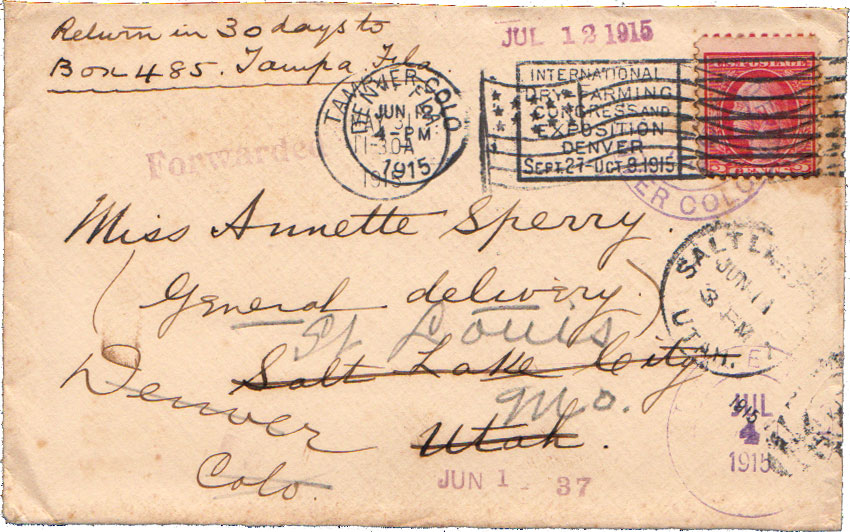 Return in 30 days to
Box 485. Tampa, Fla.
JUL 12 1915
DENVER COLO
JUN 12
4-PM
1915
TAMPA
11-30A
1915
INTERNATIONAL
DRY-FARMING
CONGRESS AND
EXPOSITION
DENVER
SEPT. 27-OCT. 9. 1915
U.S. POSTAGE
2 CENTS 2
Forwarded
ER COLO
Miss Annette Sperry.
(General delivery.)
St Louis
Salt Lake City
Mo.
Denver
Utah.
Colo.
SALT LAKE
JUN 11
3 PM
UTAH.
JUL
4
1915
1915
JUN 1 37